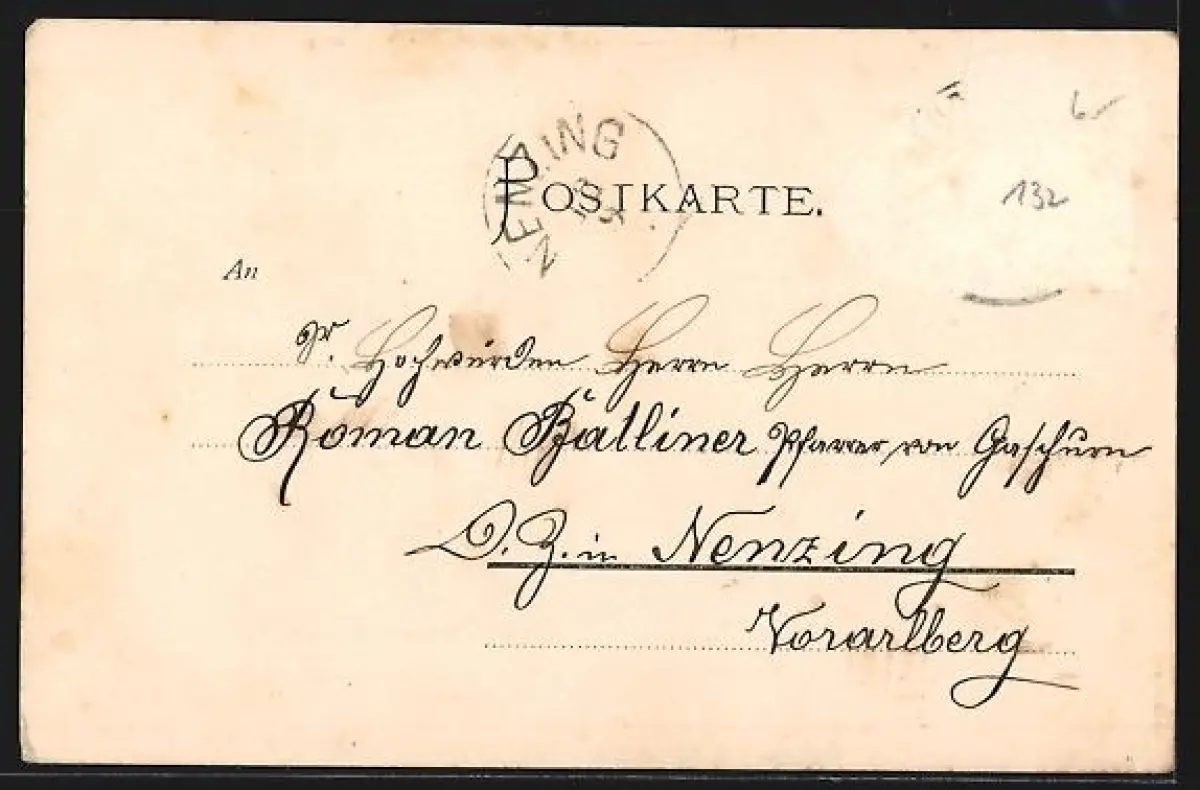 NENZING
6
132
POSTKARTE.
An
Sr. Hochwürden Herrn Herrn
Roman Batliner Pfarrer von Gaschurn
D. Z. in Nenzing
Vorarlberg